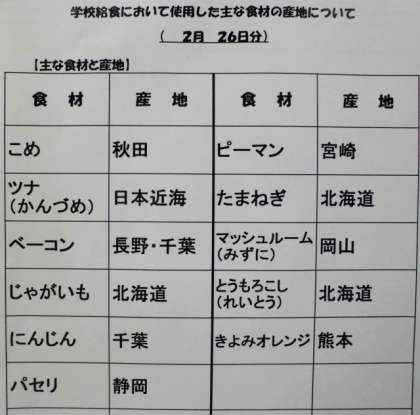 学校給食において使用した主な食材の産地について
( 2月 26日分)
【主な食材と産地】
食材 産地 食材 産地
こめ 秋田 ピーマン 宮崎
ツナ
(かんづめ) 日本近海 たまねぎ 北海道
ベーコン 長野・千葉 マッシュルーム
(みずに) 岡山
じゃがいも 北海道 とうもろこし
(れいとう) 北海道
にんじん 千葉 きよみオレンジ 熊本
パセリ 静岡